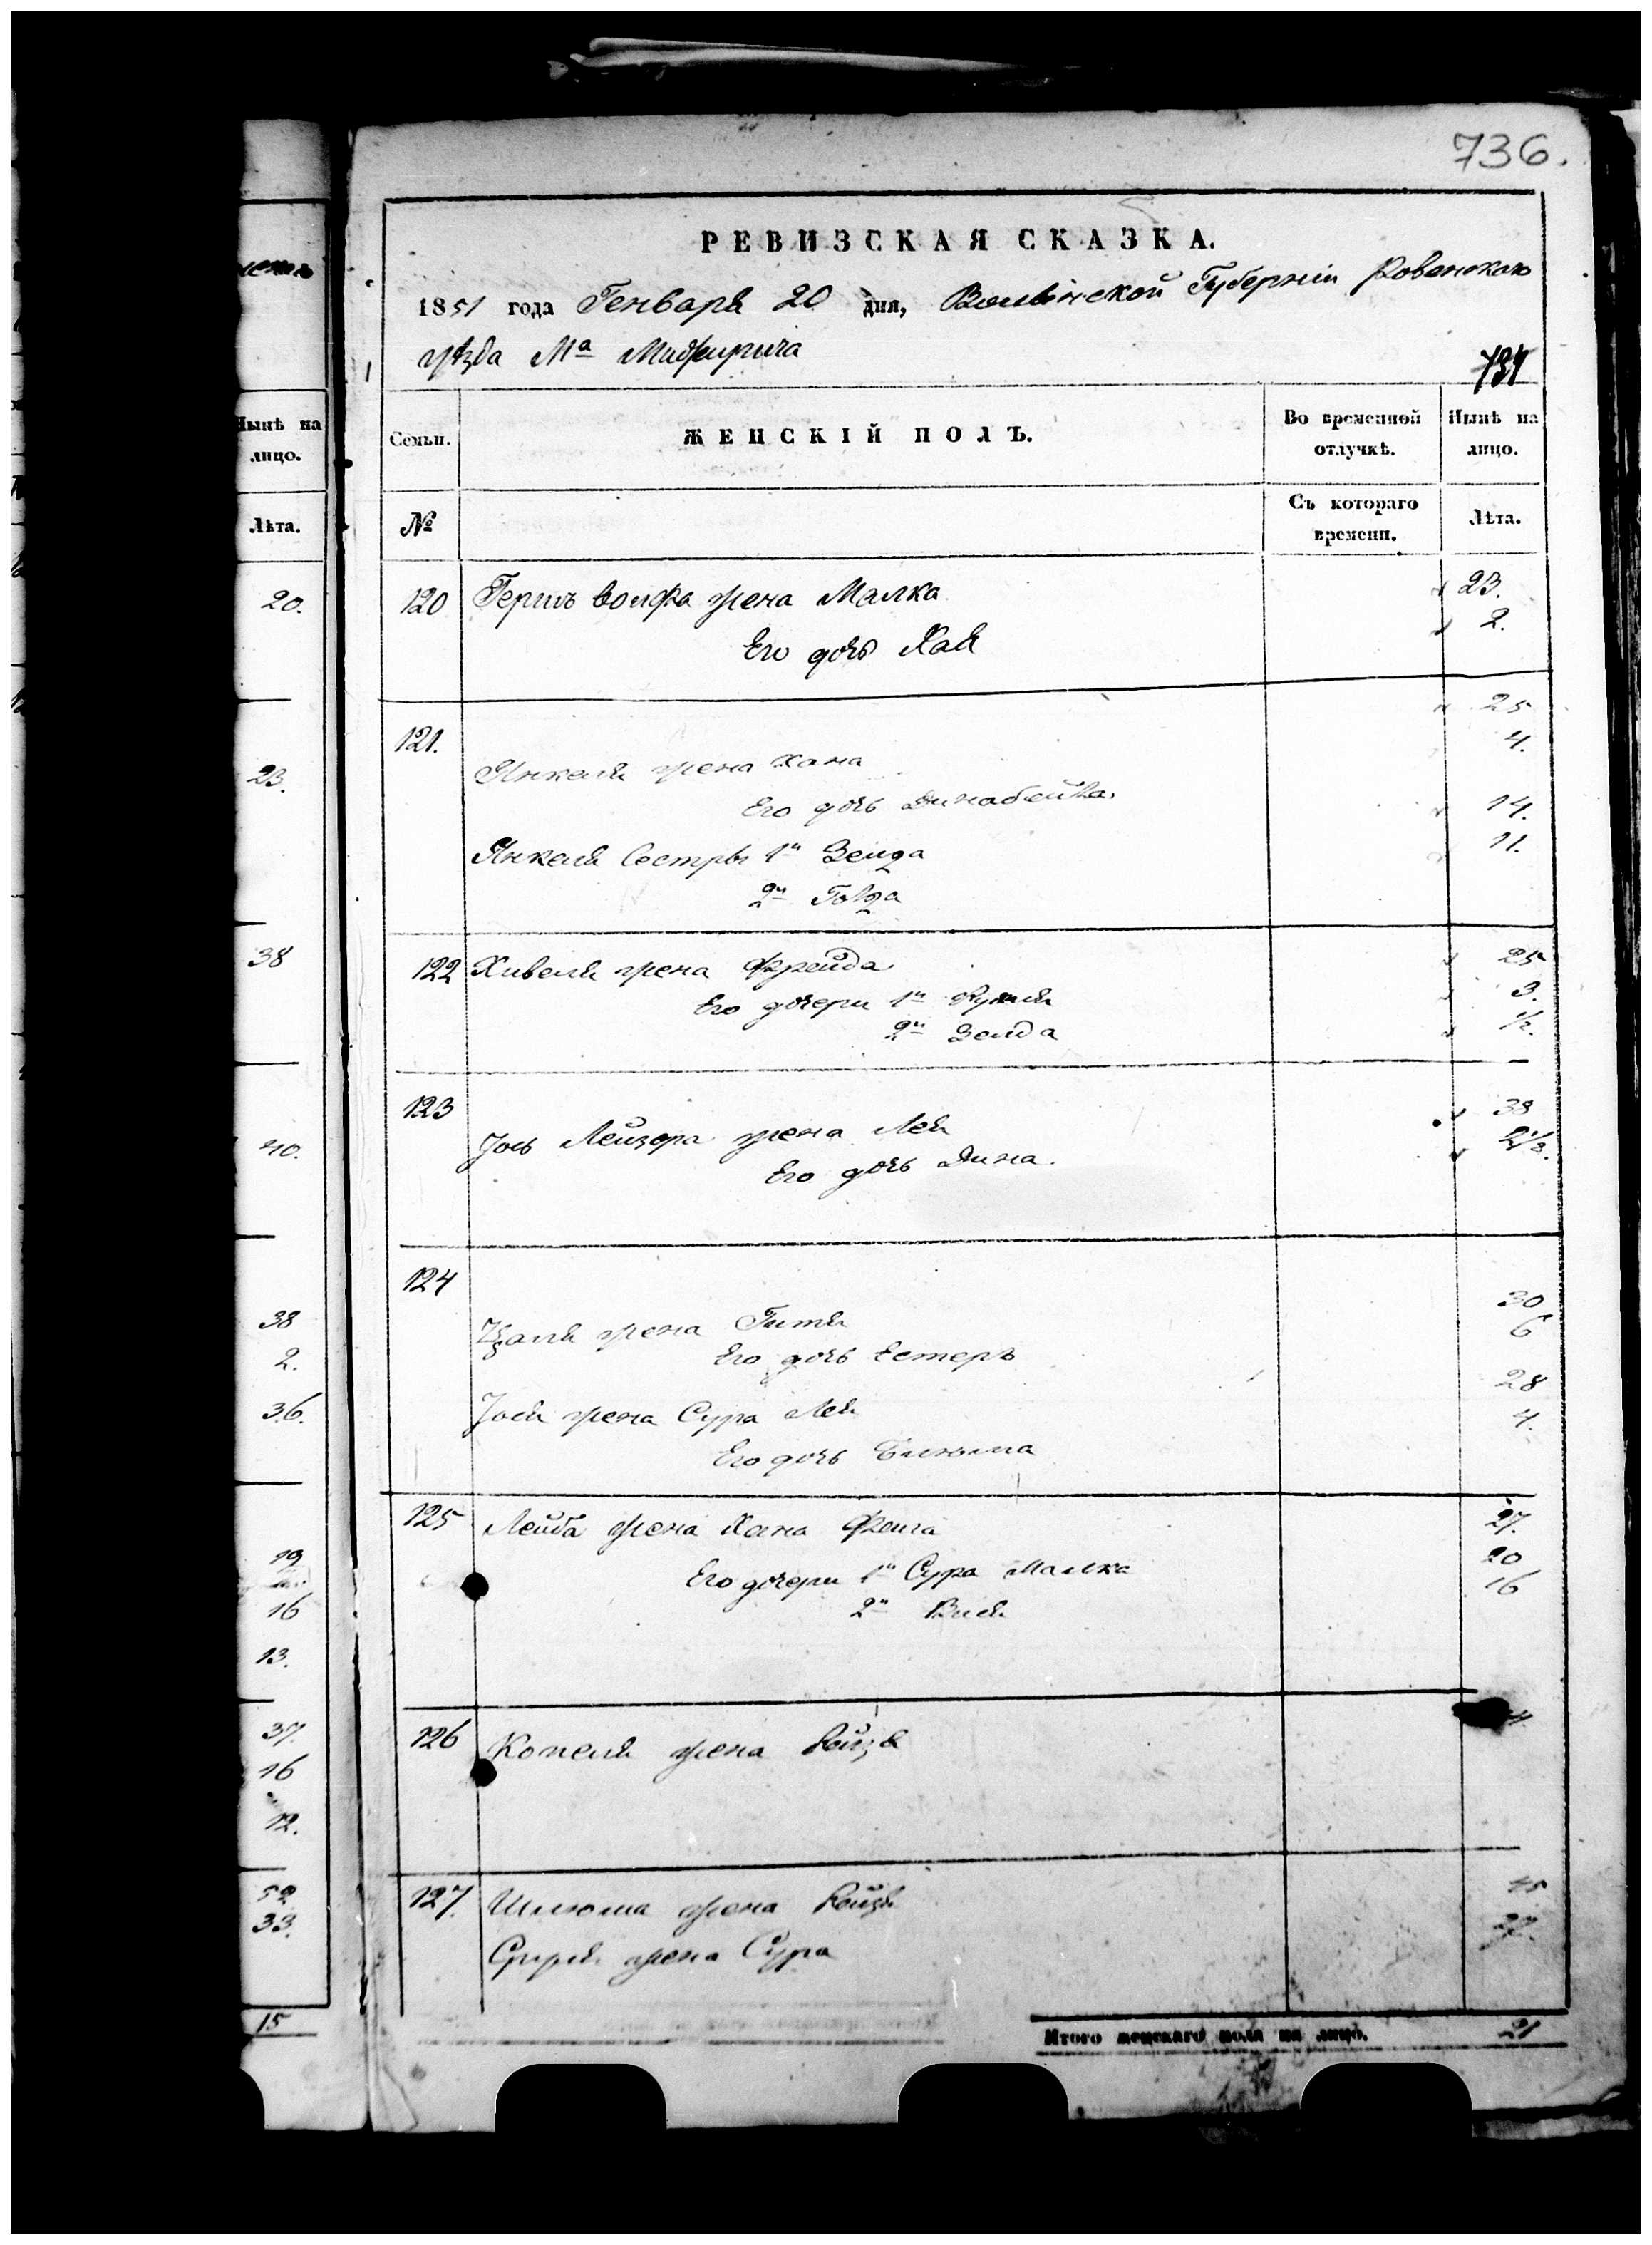 736.
РЕВИЗСКАЯ СКАЗКА.
1851 года Генваря 20 дня, Волынской Губерніи Ровенскаго
уѣзда Ма Межирича
Нынѣ на лицо.
Семьи.
ЖЕНСКІЙ ПОЛЪ.
Во временной отлучкѣ.
Нынѣ на лицо.
Лѣта.
№
Съ котораго времени.
Лѣта.
20.
120 Гершъ Волфа жена Малка 23.
Его дочь Хая 2.
121. 25
23.
Янкеля жена Хана 4.
Его дочь 14.
Янкеля Сестры 1я Зелда 11.
2я
38
122 Хивеля жена Фрейда 25
Его дочери 1я 3.
2я Зелда 1/2.
40.
123 38
Іось Лейзора жена Лея 2 1/2.
Его дочь Дина.
124
38
Іцаля жена Гитля 30
2.
Его дочь Естеръ 6
36.
Іося жена Сура Лея 28
Его дочь 4.
125 Лейба жена Хана Фейга 27.
19
Его дочери 1я Сура Малка 20
16
2я 16
13.
37.
126 Копеля жена Рейзя
16
12.
52
127. Шлюма жена Рейзя 45
33.
жена Сура 22.
15
Итого женскаго пола на лицо. 21